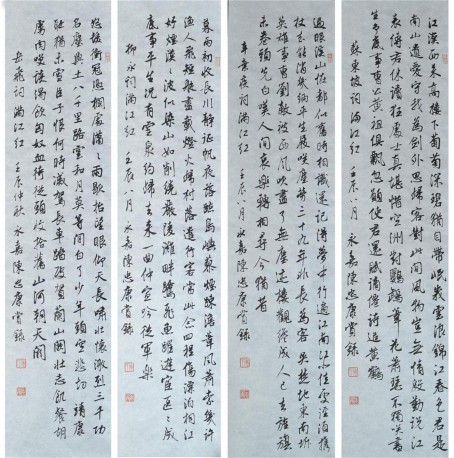 江漢西来高樓下葡萄深碧猶自带岷峨雲浪錦江春色君是
南山遺愛守我為劍外思歸客對此間風物豈無情殷勤說江
表傳君休讀狂處士真堪惜空洲對鸚鵡葦花蕭瑟不獨笑書
生争底事曹公黄祖俱飘忽願使君還賦謫僊詩追黄鶴
蘇東坡詞滿江紅 壬辰八月 永嘉陳忠康書錄
過眼溪山怪都似舊時相識還记得夢中行遍江南江北佳處徑須携
杖去能消幾緉平生屐笑塵勞三十九年非長為客吴楚地東南坼
英雄事曹劉敵被西風吹盡了無塵迹樓觀纔成人已去旌旗
未卷頭先白嘆人間哀樂轉相尋今猶昔
辛棄疾詞滿江紅 壬辰八月 永嘉陳忠康書錄
暮雨初收長川静征帆夜落臨島嶼蓼煙疎淡葦風蕭索幾許
漁人飛短艇盡載燈火歸村落遣行客當此念回程傷漂泊桐江
好煙漠漠波似染山如削繞嚴陵灘畔鷺飛魚躍遊宦區區成
底事平生况有雲泉约歸去来一曲仲宣吟從軍樂
柳永詞滿江紅 壬辰八月 永嘉陳忠康書錄
怒髮衝冠憑欄處瀟瀟雨歇抬望眼仰天長嘯壯懷激烈三千功
名塵與土八千里路雲和月莫等閒白了少年頭空悲切靖康
恥猶未雪臣子恨何時滅駕長車踏破賀蘭山闕壯志飢餐胡
虜肉笑談渴飲匈奴血待從頭收拾舊山河朝天闕
岳飛詞滿江紅 壬辰仲秋 永嘉陳忠康書錄